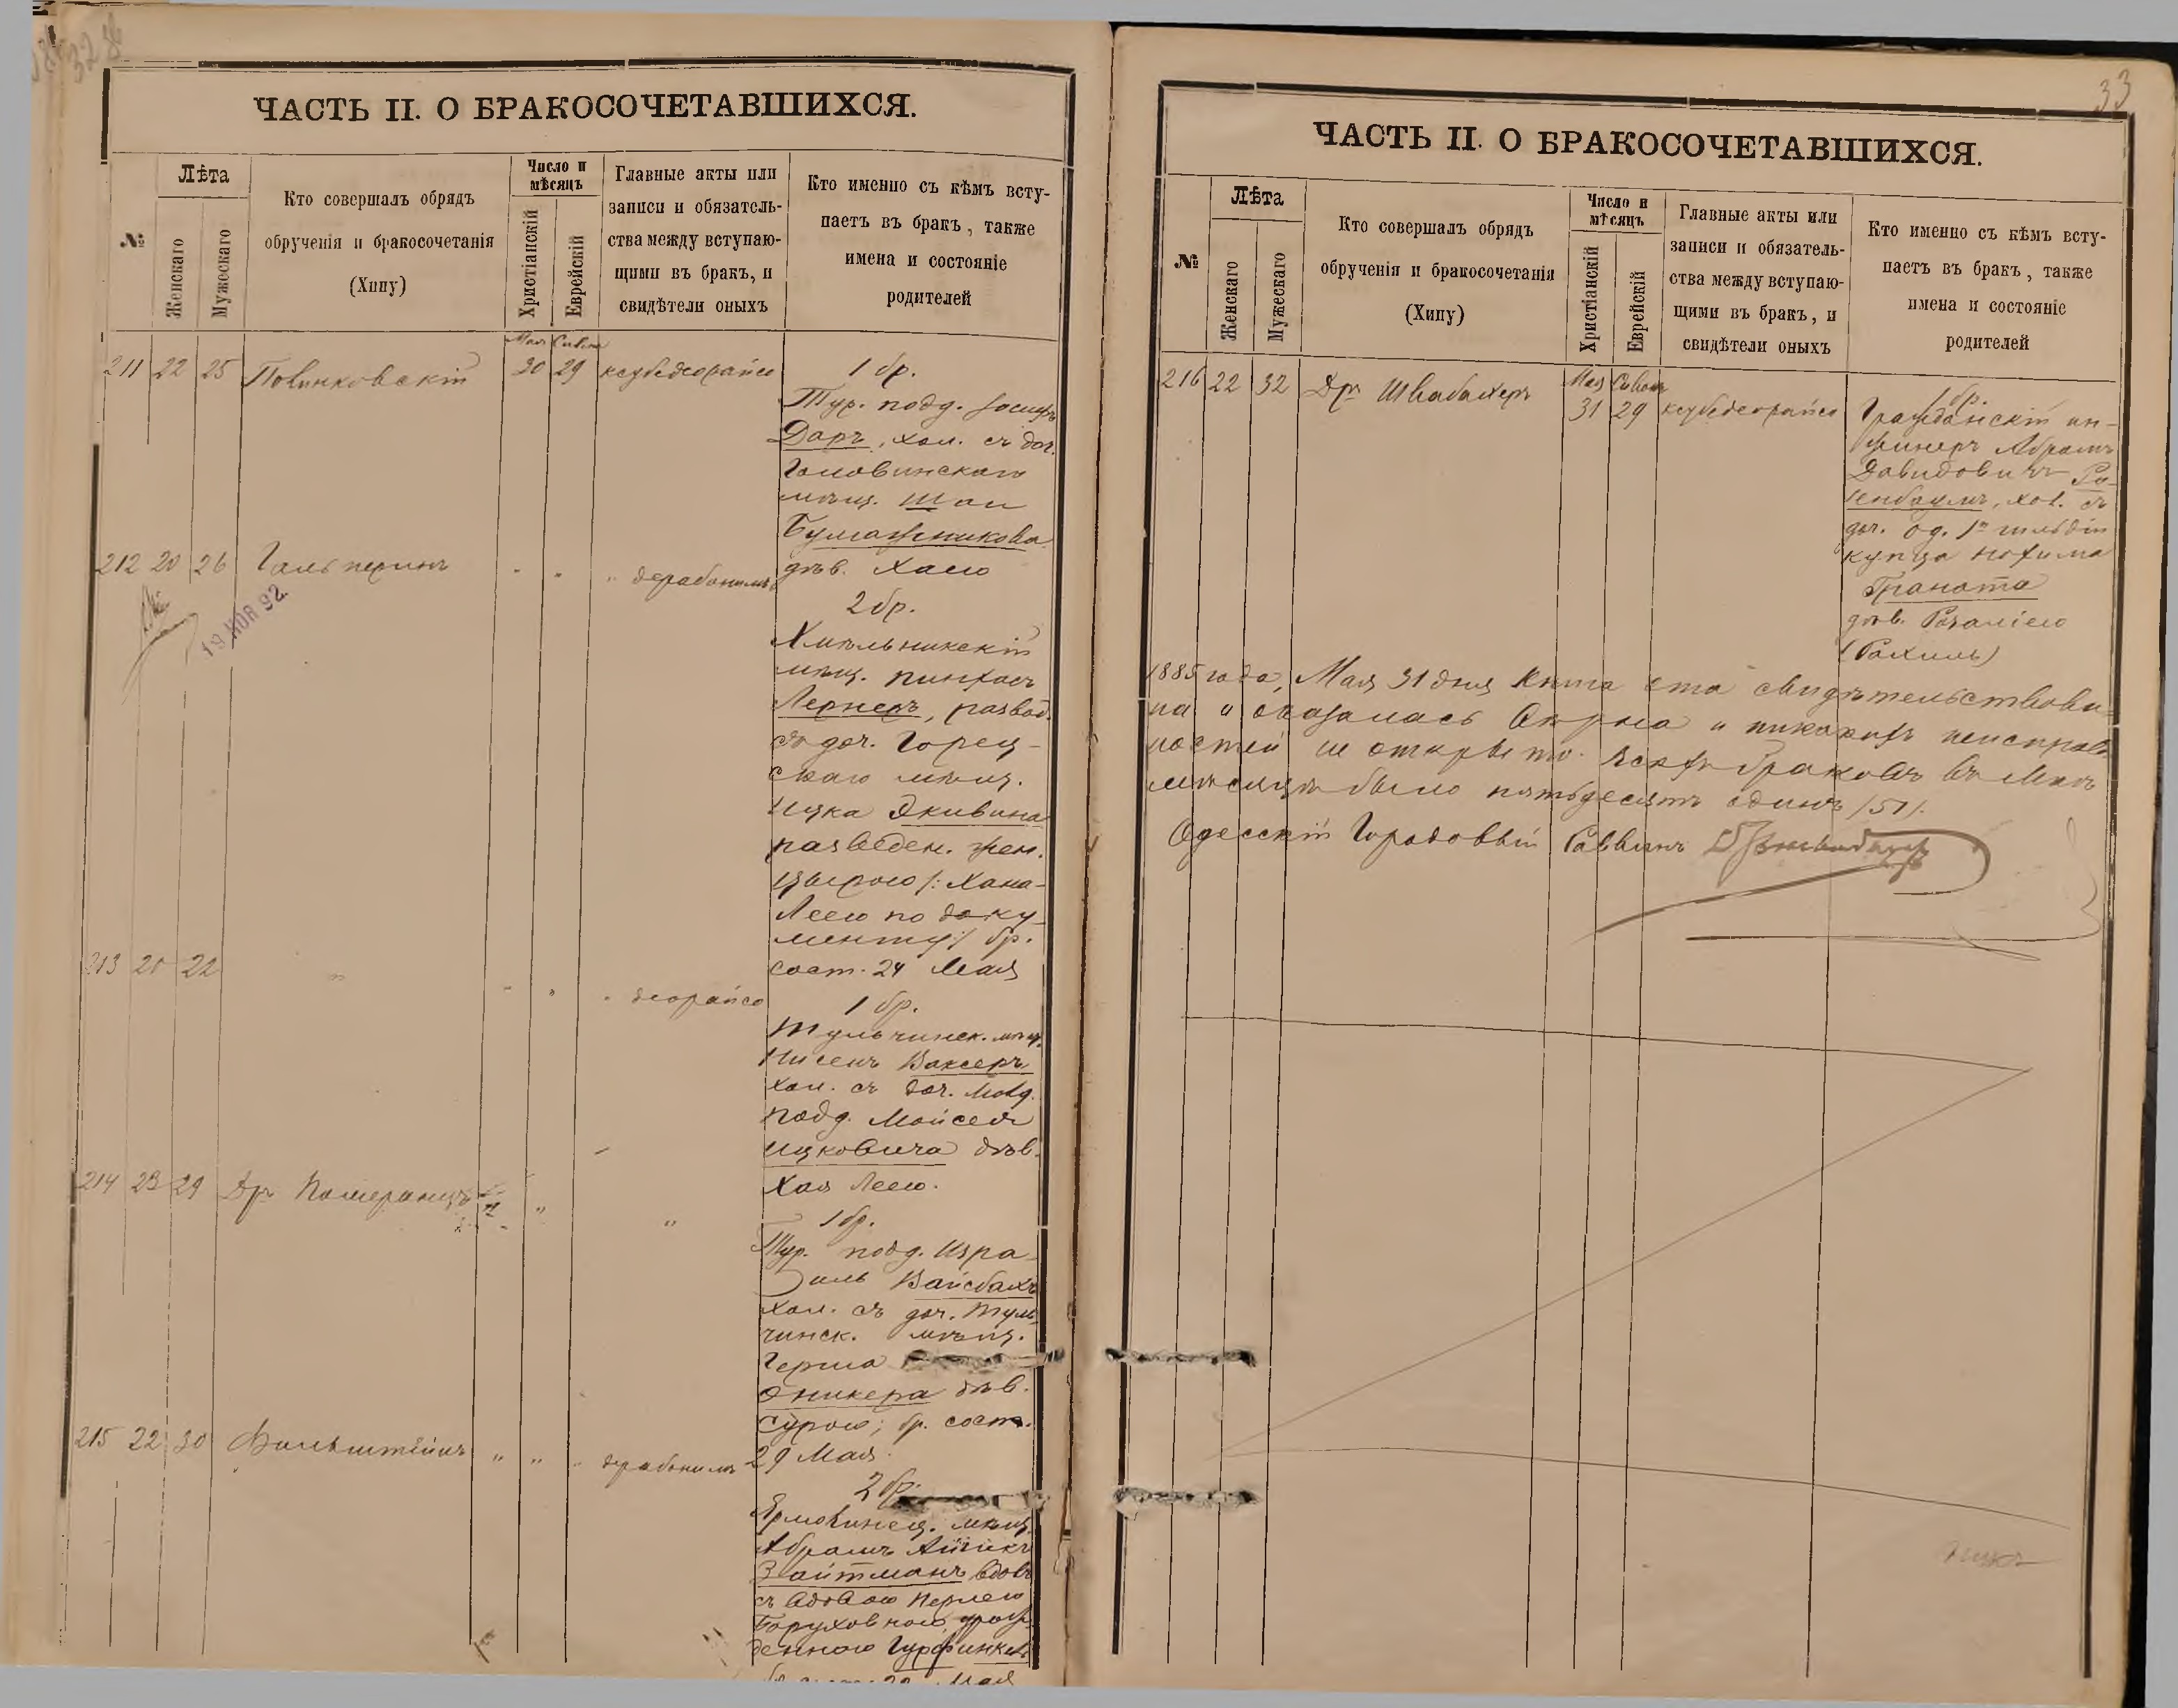 32
ЧАСТЬ II. О БРАКОСОЧЕТАВШИХСЯ.
№
Лѣта
Женскаго
Мужескаго
Кто совершалъ обрядъ
обрученія и бракосочетанія
(Хипу)
Число и
мѣсяцъ
Христіанскій
Еврейскій
Главные акты или
записи и обязатель-
ства между вступаю-
щими въ бракъ, и
свидѣтели оныхъ
Кто именно съ кѣмъ всту-
паетъ въ бракъ, также
имена и состояніе
родителей
Мая Сивана
211 22 25 Повинковскій 30 29 ксубедеорайсо
1 бр.
Тур. подд. Іосифъ
Даръ, хол. съ доч.
Головинскаго
мѣщ. Шаи
Бумажникова
дѣв. Хаею
212 20 26 Гальперинъ " " " дерабонимъ
19 НОЯ 92
2 бр.
Хмѣльникскій
мѣщ. Пинхасъ
Лернеръ, развод.
съ доч. Горец-
скаго мѣщ.
Ицка Якивина
разведен. жен.
Цыврою /: Хана-
Леею по доку-
менту:/ бр.
сост. 24 Мая
213 20 22 " " " " деорайсо
1 бр.
Тульчинск. мѣщ.
Нисенъ Ваксеръ
хол. съ доч. Молд.
подд. Мойсея
Ицковича дѣв.
Хая Леею.
214 23 29 Дръ Померанцъ " "
1 бр.
Тур. подд. Изра-
иль Вайсбахъ
хол. съ доч. Туль-
чинск. мѣщ.
Герша
Оникера дѣв.
Сурою; бр. сост.
29 Мая.
215 22 30 Филькштейнъ " " " дерабонимъ
2 бр.
Ярмолинец. мѣщ.
Абрамъ Айзикъ
Зайтманъ вдов.
съ вдовою Перлею
Боруховною, урож-
денною Гурфинкель
Мая
33
ЧАСТЬ II. О БРАКОСОЧЕТАВШИХСЯ.
№
Лѣта
Женскаго
Мужескаго
Кто совершалъ обрядъ
обрученія и бракосочетанія
(Хипу)
Число и
мѣсяцъ
Христіанскій
Еврейскій
Главные акты или
записи и обязатель-
ства между вступаю-
щими въ бракъ, и
свидѣтели оныхъ
Кто именно съ кѣмъ всту-
паетъ въ бракъ, также
имена и состояніе
родителей
Мая Сивана
216 22 32 Дръ Швабахеръ 31 29 ксубедеорайсо
1 бр.
Гражданскій ин-
женеръ Абрамъ
Давидовичъ Ро-
зенбаумъ, хол. съ
доч. Од. 1й гильдіи
купца Нохима
Граната
дѣв. Розаліею
(Рахиль)
1885 года, Мая 31 дня Книга эта свидѣтельствова-
на и оказалась вѣрна и никакихъ неисправ-
ностей не открыто. Всехъ браковъ въ Маѣ
мѣсяцѣ было пятьдесятъ одинъ /51/.
Одесскій Городовый Раввинъ